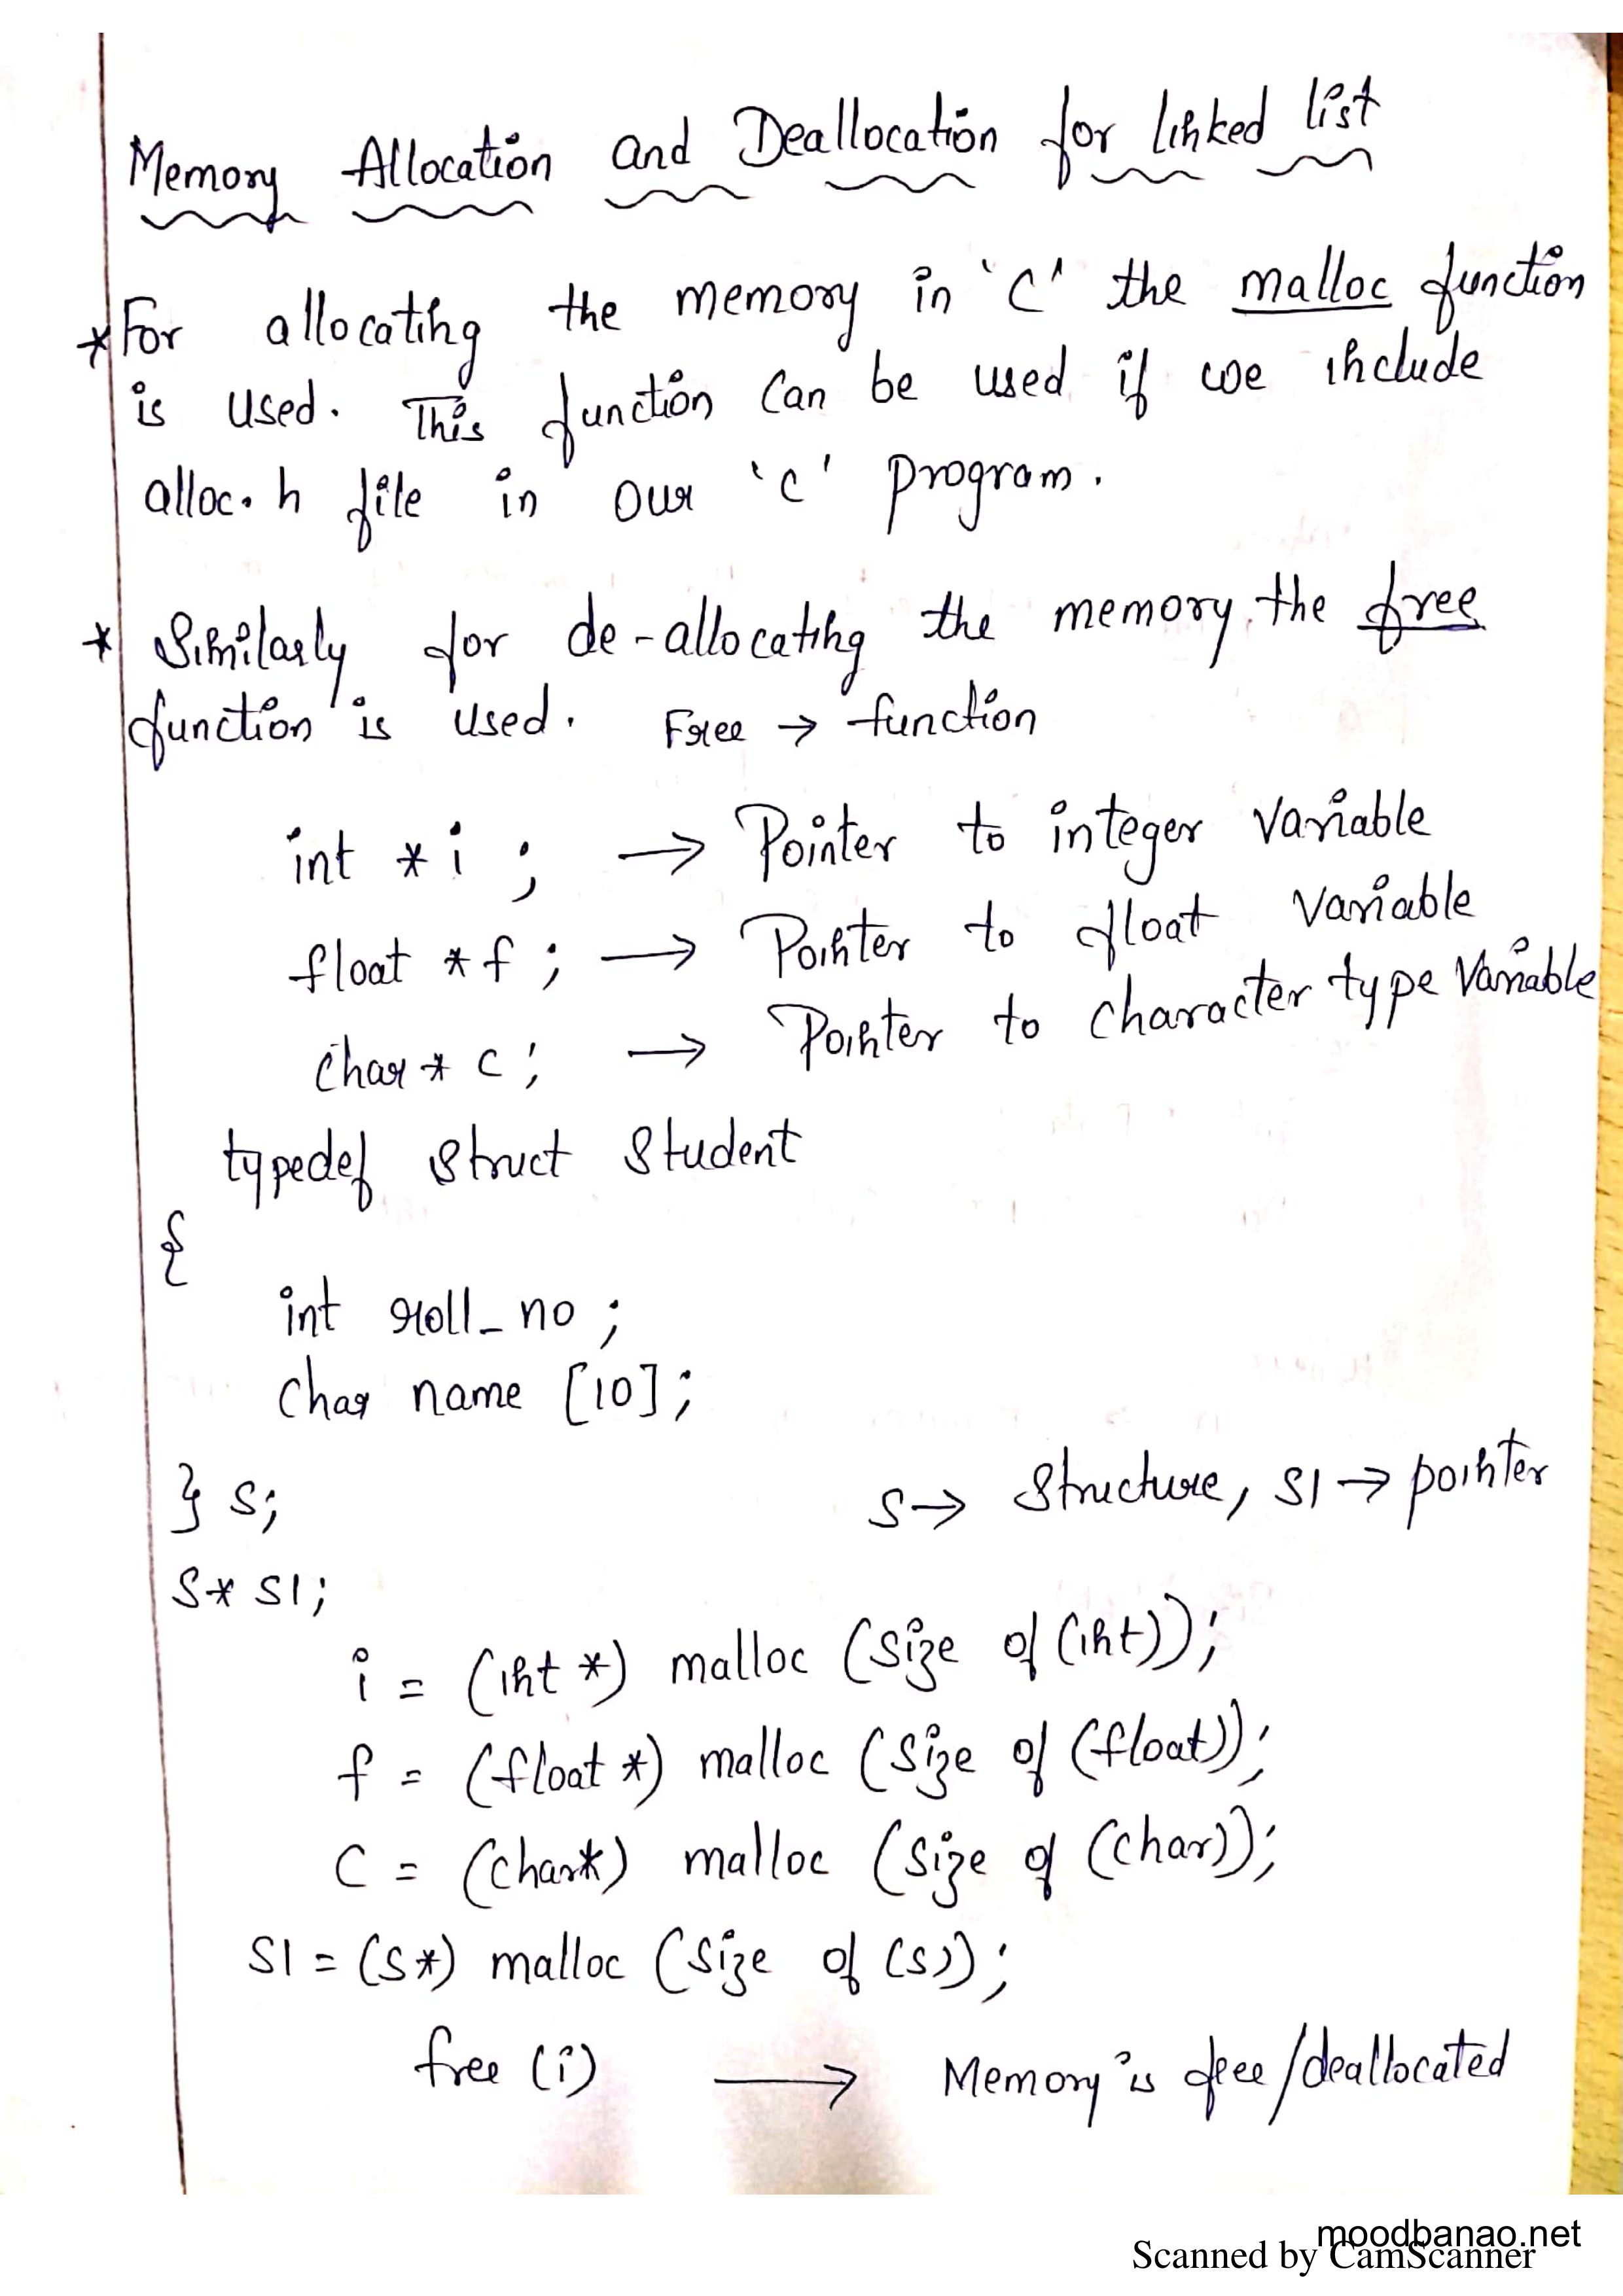 Memory Allocation and Deallocation for linked list
*For allocating the memory in 'C' the malloc function
is used. This function can be used if we include
alloc.h file in our 'c' program.
* Similarly for de-allocating the memory the free
function is used. Free → function
int *i ; → Pointer to integer variable
float *f ; → Pointer to float variable
char * c ; → Pointer to character type variable
typedef struct student
{
int roll_no ;
char name [10] ;
} s; s → structure, s1 → pointer
s* s1;
i = (int *) malloc (size of (int));
f = (float *) malloc (size of (float));
C = (char*) malloc (size of (char));
S1 = (s*) malloc (size of (s));
free (i) → Memory is free/deallocated
moodbanao.net
Scanned by CamScanner